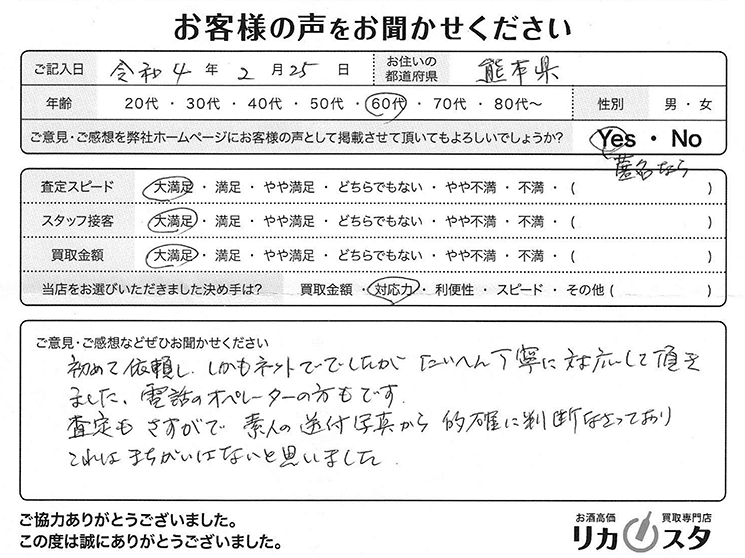 お客様の声をお聞かせください
ご記入日 令和4年2月25日 お住いの都道府県 熊本県
年齢 20代・30代・40代・50代・60代・70代・80代〜 性別 男・女
ご意見・ご感想を弊社ホームページにお客様の声として掲載させて頂いてもよろしいでしょうか? Yes・No
匿名なら
査定スピード 大満足・満足・やや満足・どちらでもない・やや不満・不満・( )
スタッフ接客 大満足・満足・やや満足・どちらでもない・やや不満・不満・( )
買取金額 大満足・満足・やや満足・どちらでもない・やや不満・不満・( )
当店をお選びいただきました決め手は? 買取金額・対応力・利便性・スピード・その他( )
ご意見・ご感想などぜひお聞かせください
初めて依頼し、しかもネットででしたが たいへん丁寧に対応して頂き
ました、電話のオペレーターの方もです.
査定も さすがで 素人の送付写真から 的確に判断なさっており
これは まちがいはないと思いました.
ご協力ありがとうございました。
この度は誠にありがとうございました。
お酒高価 買取専門店
リカスタ